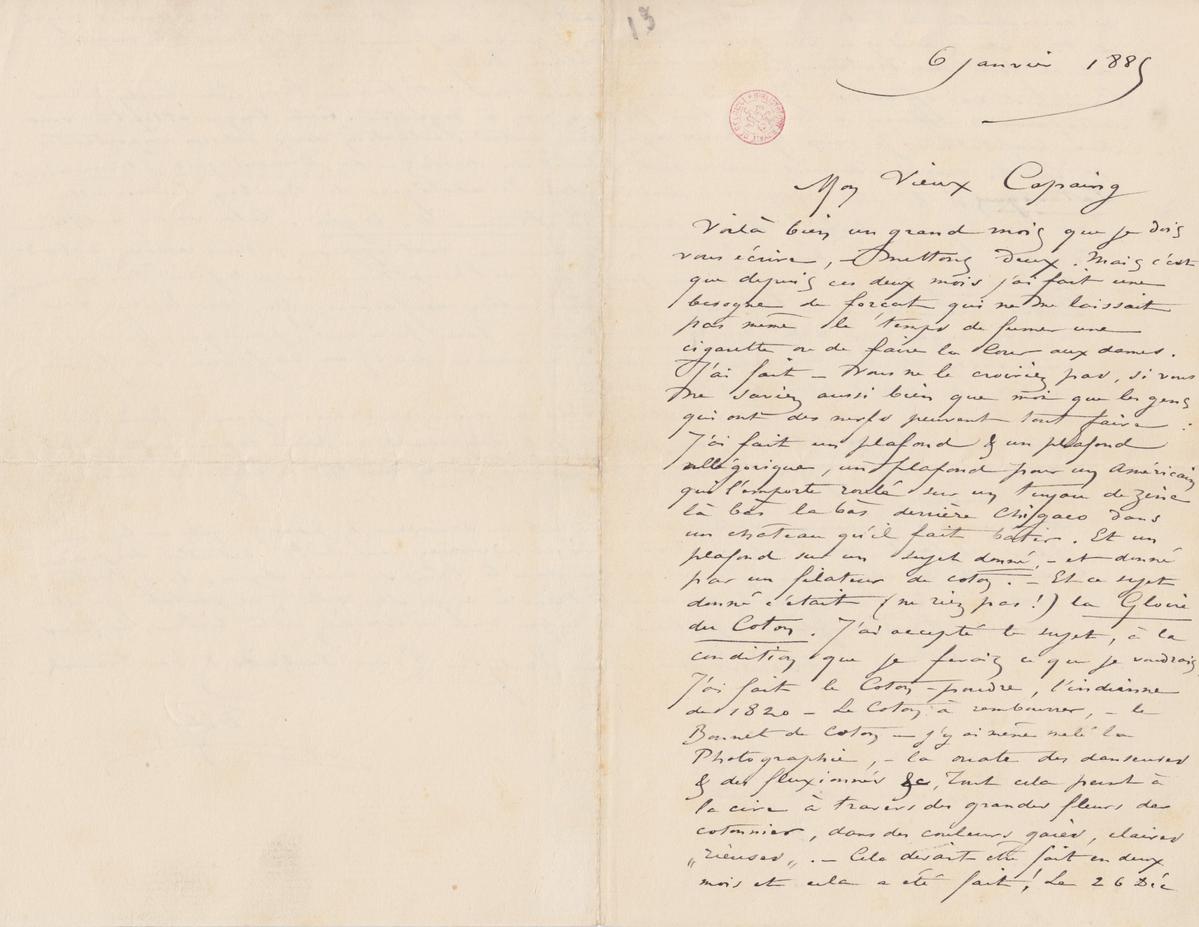 13
6 Janvier 1885
BIBLIOTHÈQUE ROYALE DE BELGIQUE
Mon Vieux Copaing
Voilà bien un grand mois que je dois
vous écrire, – mettons deux. Mais c'est
que depuis ces deux mois j'ai fait une
besogne de forcat qui ne me laissait
pas même le temps de fumer une
cigarette ou de faire la cour aux dames.
J'ai fait – vous ne le croiriez pas, si vous
ne saviez aussi bien que moi que les gens
qui ont des nerfs peuvent tout faire :
J'ai fait un plafond & un plafond
allégorique, un plafond pour un Américain
qui l'emporte roulé sur un tuyau de zinc
là bas la bas derrière Chigaco dans
un château qu'il fait bâtir. Et un
plafond sur un sujet donné, – et donné
par un filateur de coton. – Et ce sujet
donné c'était (ne riez pas !) la Gloire
du Coton. J'ai accepté le sujet, à la
condition que je ferais ce que je voudrais
J'ai fait le Coton-poudre, l'indienne
de 1820 – Le Coton à rembourrer, – le
Bonnet de Coton – j'y ai même mêlé la
Photographie, – la ouate des danseuses
& des fluxionnés &c, Tout cela peint à
la cire à travers des grandes fleurs de
cotonnier, dans des couleurs gaies, claires
„rieuses„. – Cela devait être fait en deux
mois et cela a été fait ! Le 26 Déc